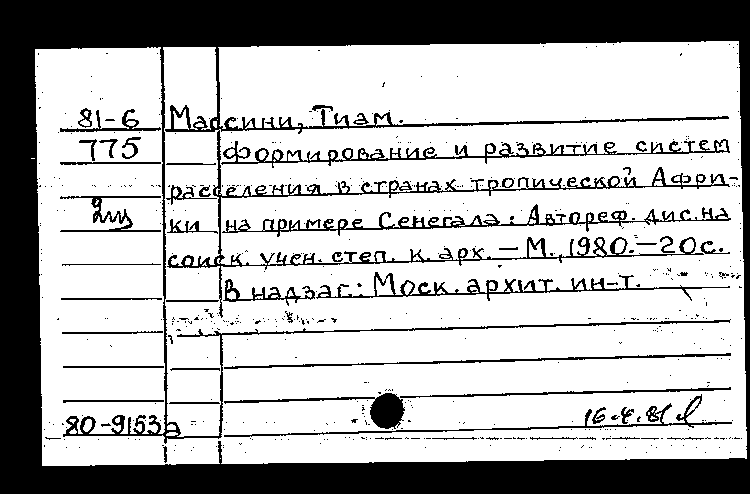 81-6 Массини, Тиам.
775 Формирование и развитие систем
расселения в странах тропической Афри-
ки на примере Сенегала: Автореф. дис. на
соиск. учен. степ. к. арх. — М., 1980. — 20 с.
В надзаг.: Моск. архит. ин-т.
80-9153а 16.4.81